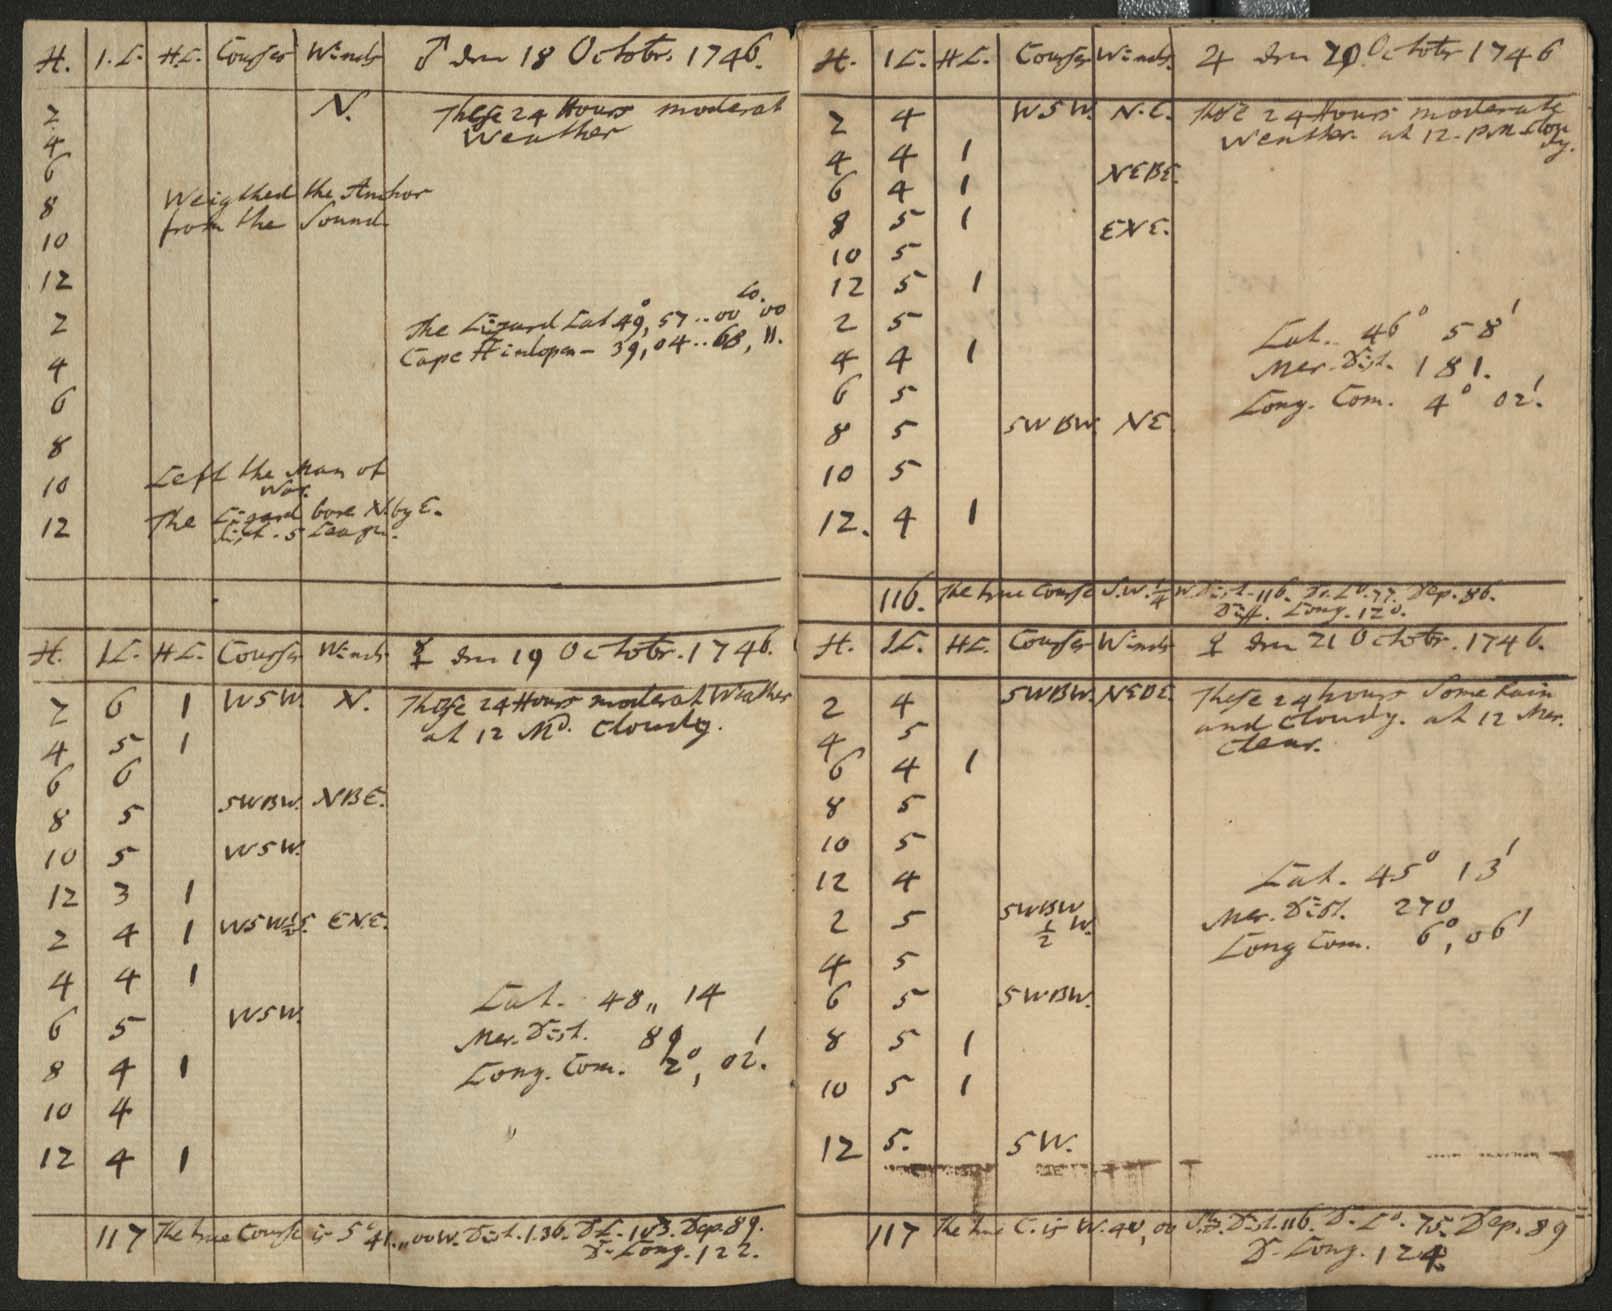 H. I.L. H.L. Courses Winds ♂ den 18 Octobr. 1746.
2 N. These 24 Hours moderat
4 Weather
6
8 Weighed the Anchor
from the Sound
10
12
Lo.
2 The Lizard Lat 49°, 57 .. 00° 00
Cape Hinlopen - 39, 04 .. 68, 11.
4
6
8
10 Left the Man of
War.
12 The Lizard bore N. by E.
dist. 5 Leagu.
H. I.L. H.L. Courses Winds ☿ den 19 Octobr. 1746.
2 6 1 WSW. N. These 24 Hours moderat Weather
4 5 1 at 12 Md. Cloudy.
6 6
8 5 SWBW. NBE.
10 5 WSW.
12 3 1
2 4 1 WSW½S. ENE.
4 4 1 Lat. 48,, 14
6 5 WSW. Mer. Dist. 89
8 4 1 Long. Com. 2°, 02'.
10 4
12 4 1
117 The true Course is S° 41,,00 W. Dist. 136. D.L. 103. Dep. 89.
D. Long. 122.
H. I.L. H.L. Courses Winds. ♃ den 20 Octobr 1746
2 4 WSW. N.E. These 24 Hours moderate
Weather. at 12. P.M Clou
dy.
4 4 1 NEBE.
6 4 1
8 5 1 ENE.
10 5
12 5 1
2 5 Lat. 46° 58'
4 4 1 Mer. Dist. 181.
6 5 Long. Com. 4° 02'.
8 5 SWBW. NE.
10 5
12. 4 1
116. The true Course S.W. ¼ W. Dist. 116. D. Lo. 77. Dep. 86.
Diff. Long. 120.
H. I.L. H.L. Courses Winds ♀ den 21 Octobr. 1746.
2 4 SWBW. NEBE. These 24 hours Some Rain
4 5 and Cloudy. at 12 Mer.
Clear.
6 4 1
8 5
10 5
12 4 Lat. 45° 13'
2 5 SWBW
½ W. Mer. Dist. 270
4 5 Long Com. 6°, 06'
6 5 SWBW.
8 5 1
10 5 1
12 5. SW.
117 The true C. is W. 40, 00 Dist. 116. D. Lo. 75. Dep. 89
D. Long. 124.